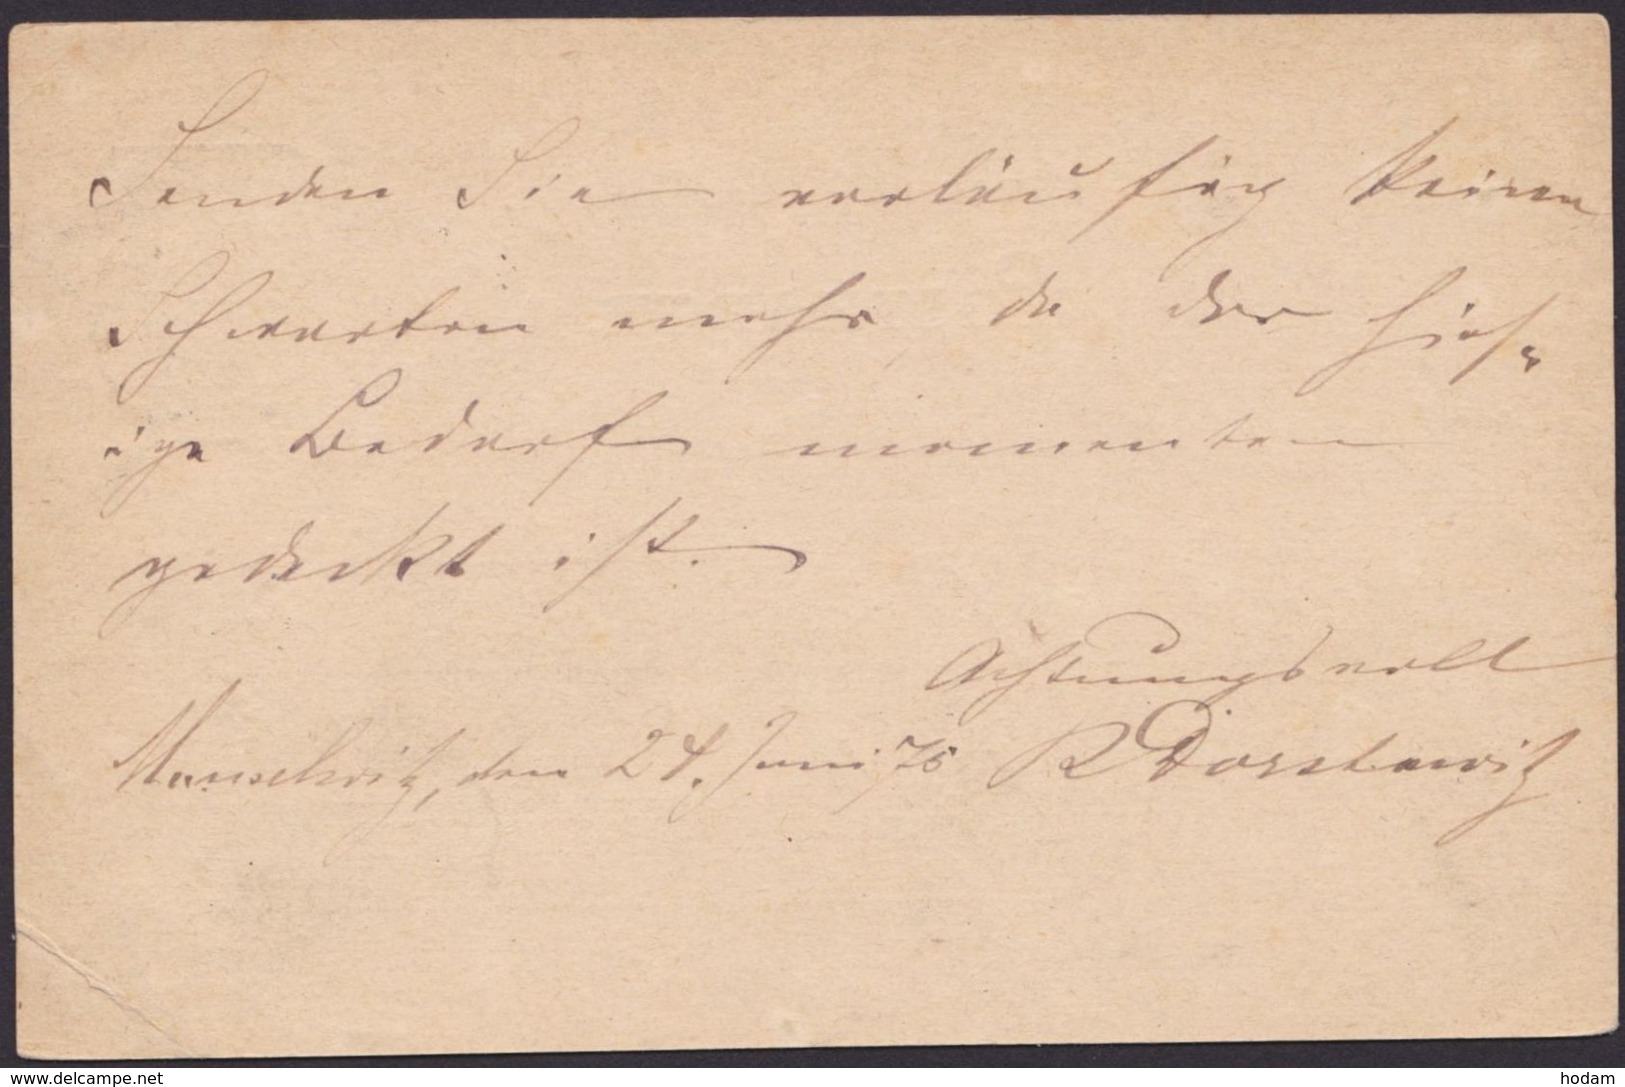 Senden Sie vorläufig keine
Schwarten mehr, da der hies-
ige Bedarf momentan
gedeckt ist.
Achtungsvoll
Manschwitz, den 24. Juni 75 R Dorstewitz
www.delcampe.net
hodam